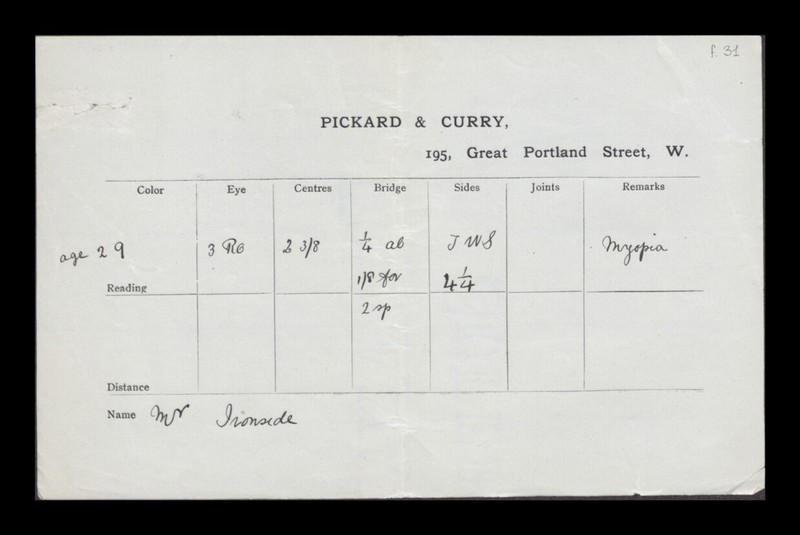 f. 31
PICKARD & CURRY,
195, Great Portland Street, W.
Color Eye Centres Bridge Sides Joints Remarks
age 29 3 2 3/8 1/4 ab J W S Myopia
Reading 1/8 for 4 1/4
2 sp
Distance
Name Mr Ironside